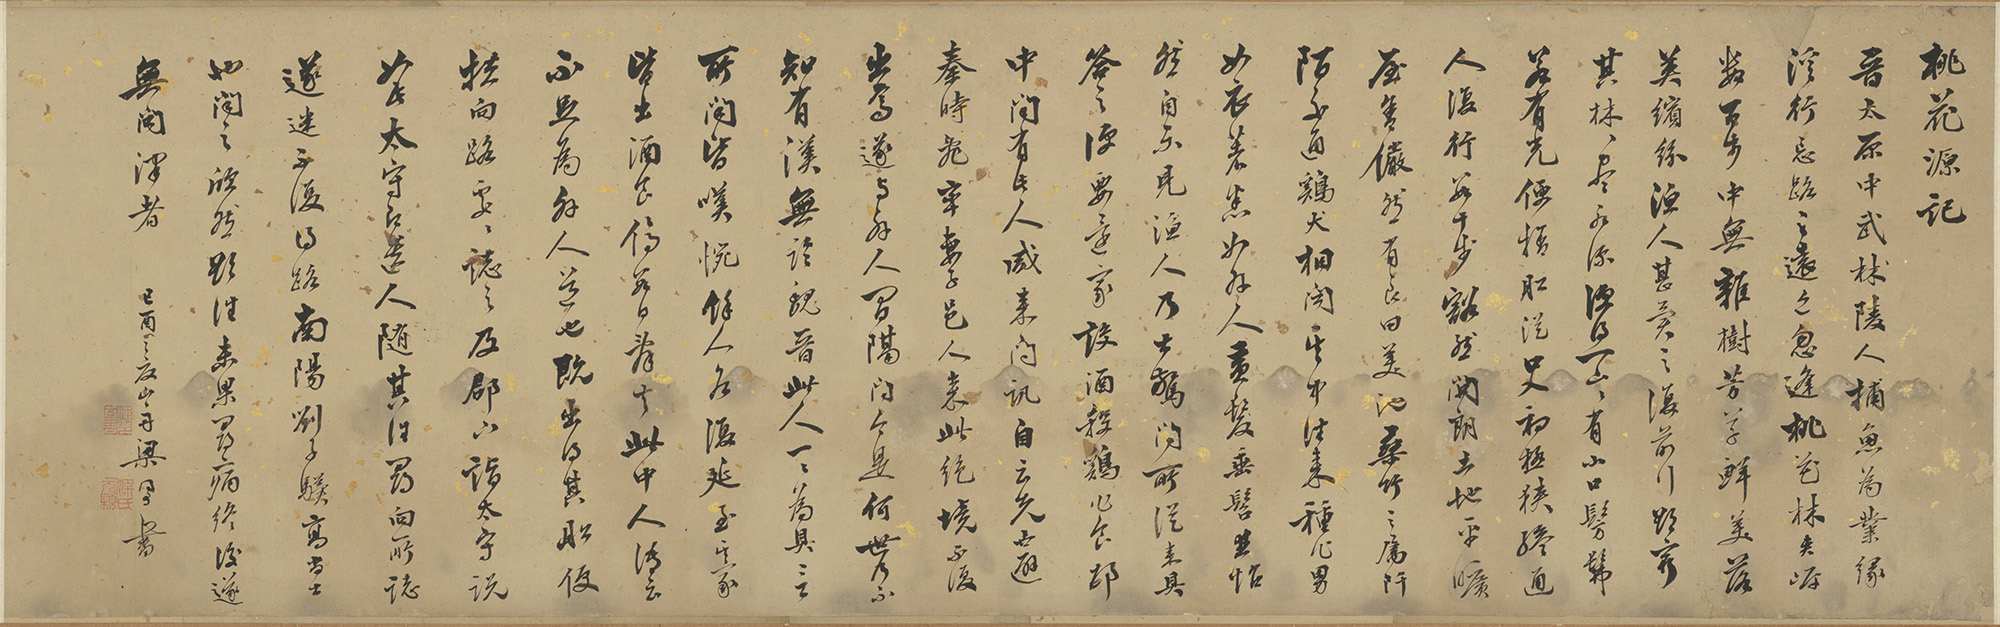 桃花源記
晉太原中武林陵人捕魚為業緣
溪行忘路之遠近忽逢桃花林夾岸
數百步中無雜樹芳草鮮美落
英繽紛漁人甚異之復前行欲窮
其林林盡水源便得一山山有小口髣髴
若有光便捨舡從口入初極狹纔通
人復行數十步豁然開朗土地平曠
屋舍儼然有良田美池桑竹之屬阡
陌交通鷄犬相聞其中往來種作男
女衣著悉如外人黃髮垂髫並怡
然自樂見漁人乃大驚問所從來具
答之便要還家設酒殺鷄作食邨
中聞有此人咸來問訊自云先世避
秦時亂率妻子邑人來此絕境不復
出焉遂與外人間隔問今是何世乃不
知有漢無論魏晉此人一一為具言
所聞皆嘆惋餘人各復延至其家
皆出酒食停數日辭去此中人語云
不足為外人道也既出得其舡便
扶向路處處誌之及郡下詣太守說
如此太守即遣人隨其往尋向所誌
遂迷不復得路南陽劉子驥高尚士
也聞之欣然欲往未果尋病終後遂
無問津者
己酉 山舟梁同書